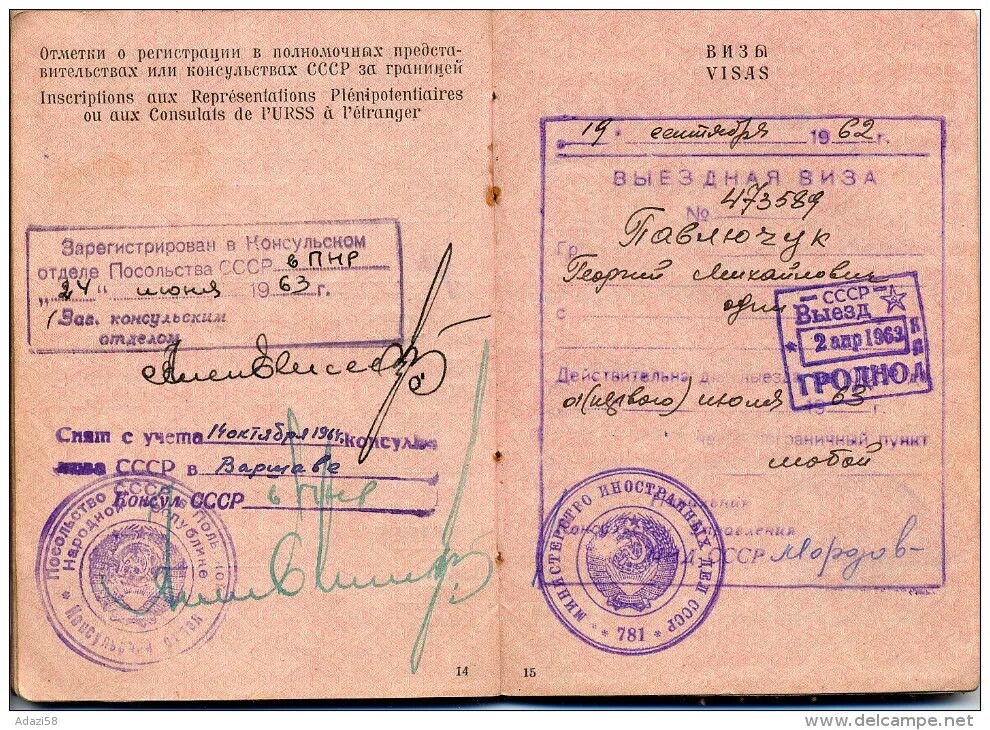 Отметки о регистрации в полномочных предста-
вительствах или консульствах СССР за границей
Inscriptions aux Représentations Plénipotentiaires
ou aux Consulats de l'URSS à l'étranger
Зарегистрирован в Консульском
отделе Посольства СССР в ПНР
„24“ июня 1963 г.
Зав. консульским
отделом
Снят с учета 14 октября 1964 г. консуль
СССР в Варшаве
Консул СССР в ПНР
Посольство СССР в Польской
Народной Республике
* Консульский отдел
14
ВИЗЫ
VISAS
19 сентября 1962 г.
ВЫЕЗДНАЯ ВИЗА
№ 473589
Гр. Павлючук
Георгий Михайлович
с один
СССР
Выезд
2 апр 1963
КПП
ГРОДНО
Действительна для выезда до
01 (первого) июля 1963 г.
через пограничный пункт
любой
Консульского управления
МИД СССР Мордов-
МИНИСТЕРСТВО ИНОСТРАННЫХ ДЕЛ СССР
* 781 *
15
Adazi58
www.delcampe.net